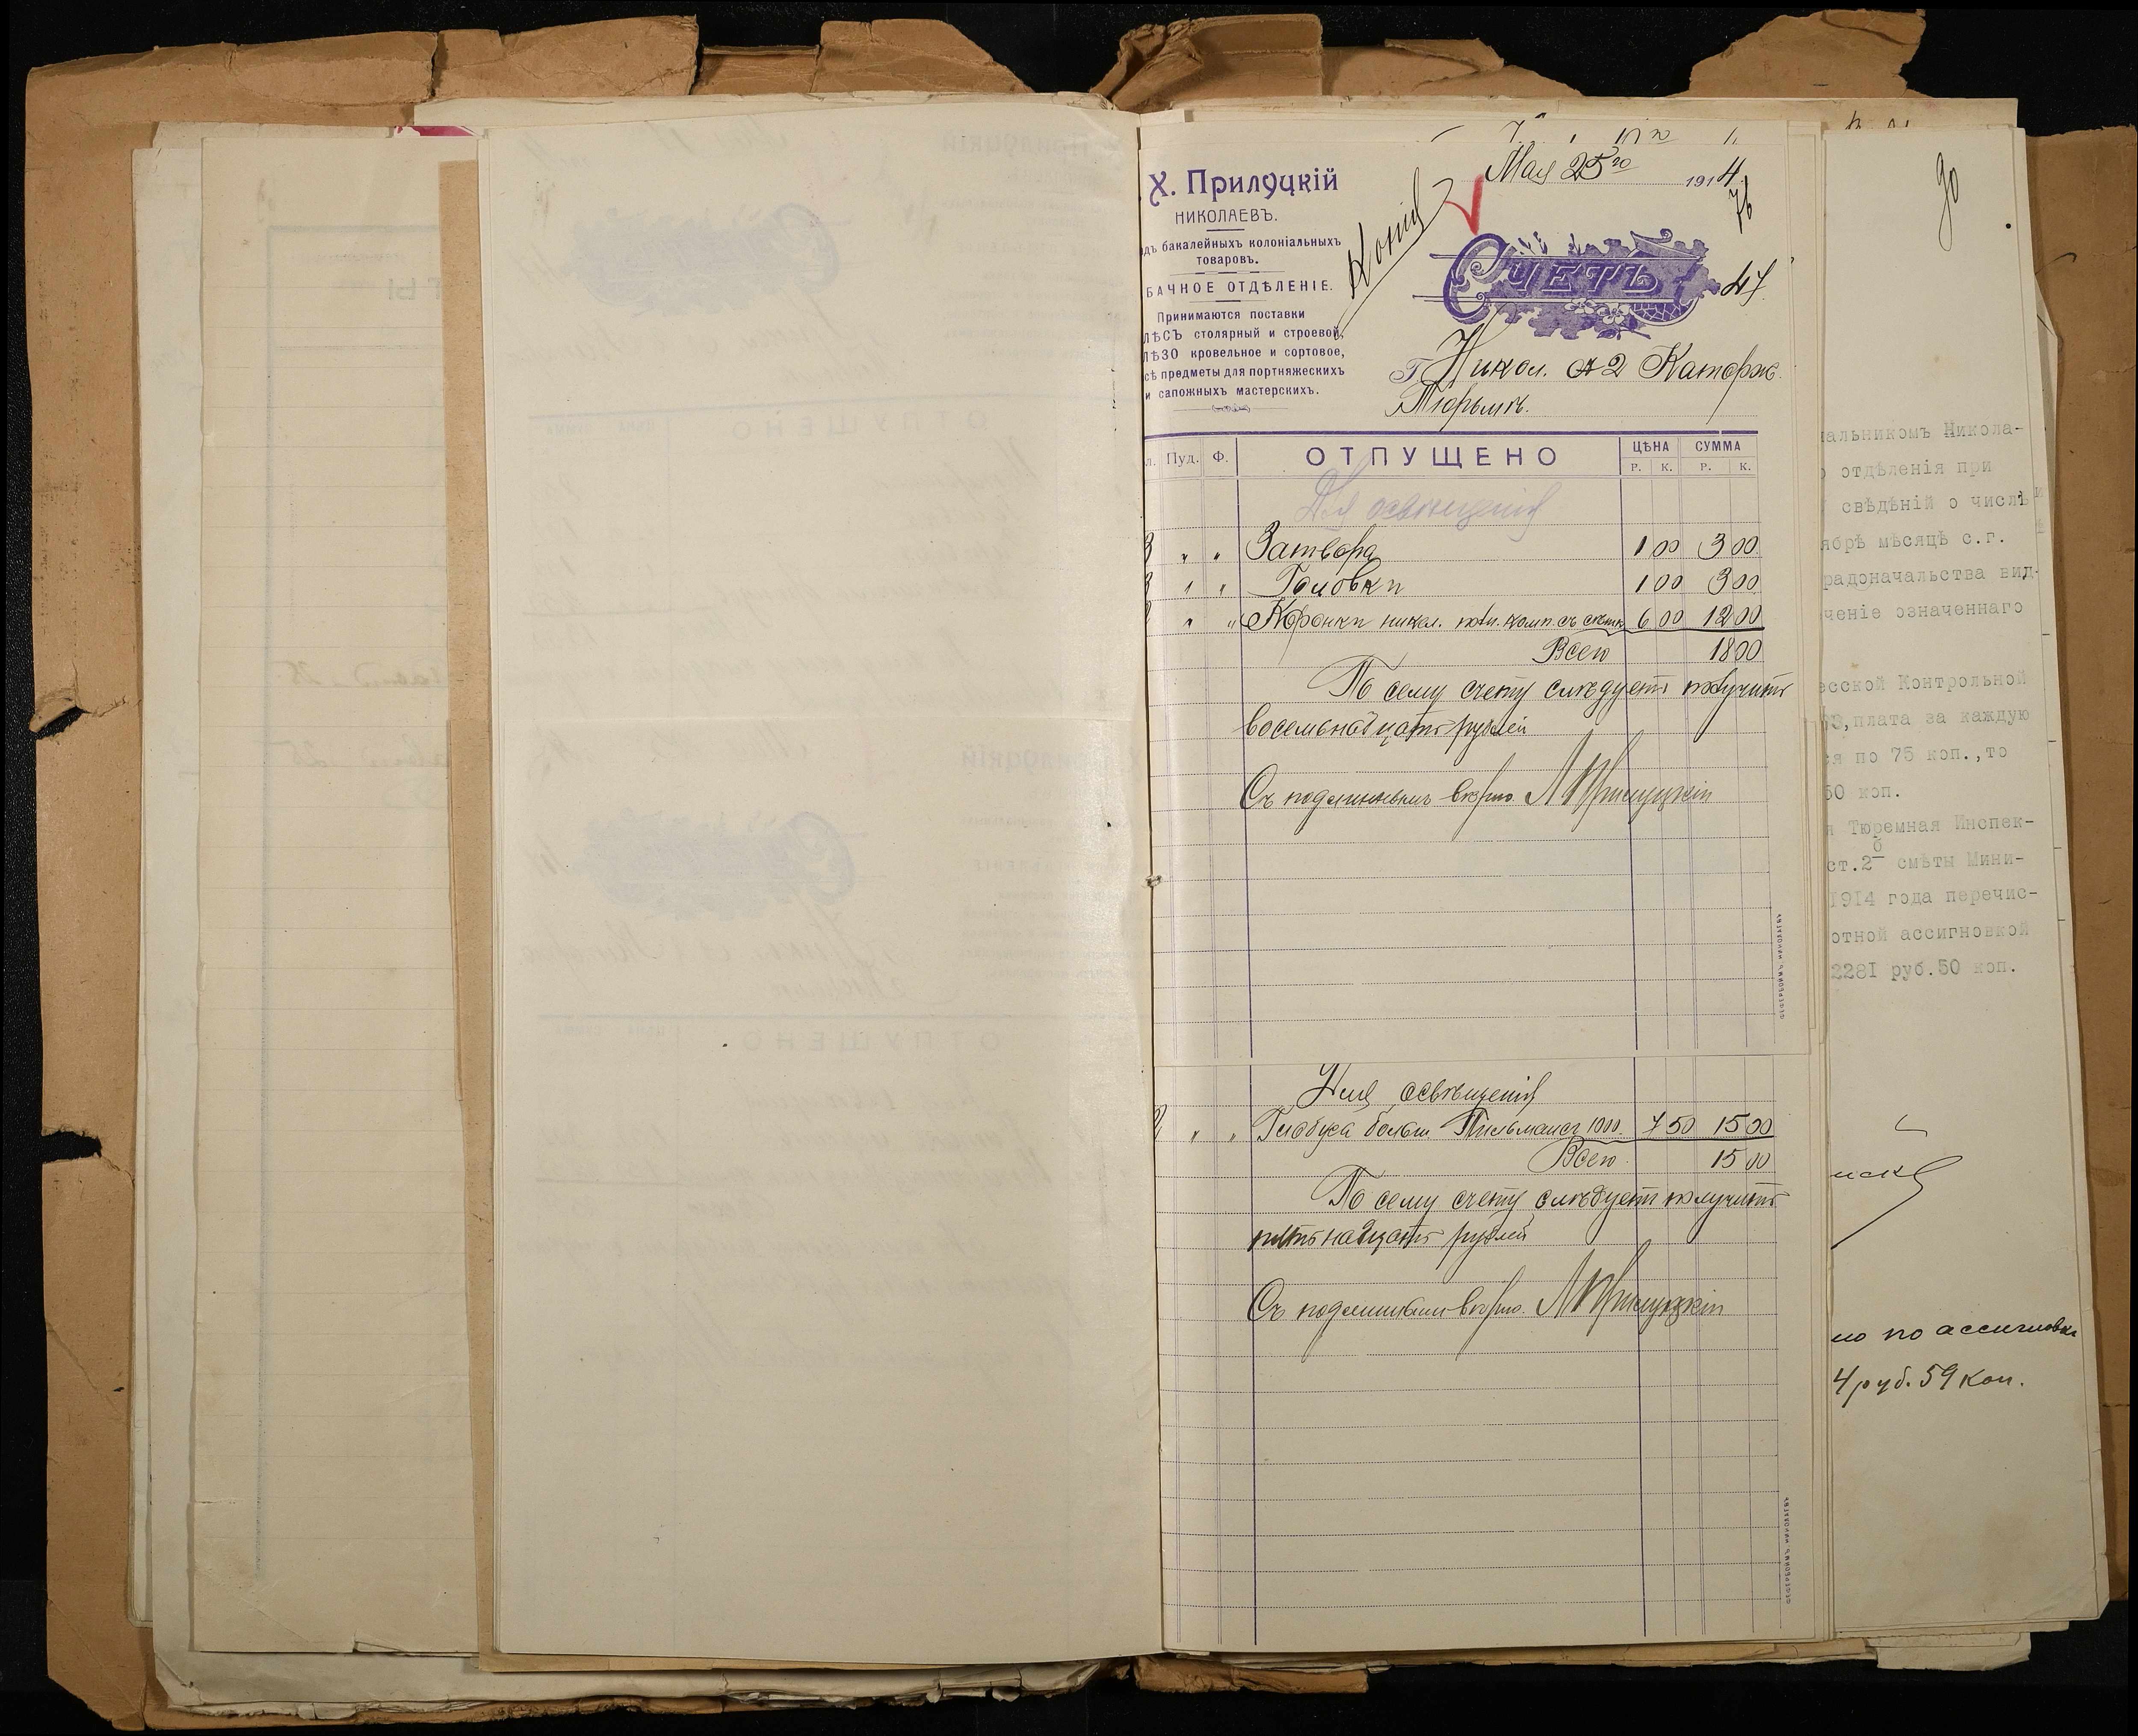 Мая 25го 1914
76
Х. Прилуцкій
НИКОЛАЕВЪ.
дъ бакалейныхъ колоніальныхъ
товаровъ.
БАЧНОЕ ОТДѢЛЕНІЕ.
Принимаются поставки
ЛѢСЪ столярный и строевой,
ЛѢЗО кровельное и сортовое,
сѣ предметы для портняжескихъ
и сапожныхъ мастерскихъ.
Копія
Счетъ
47
Г. Никол. Каторж.
Тюрьмѣ.
л. Пуд. Ф. ОТПУЩЕНО ЦѢНА Р. К. СУММА Р. К.
Для освѣщенія
3 " " Затвора 1 00 3 00
3 " " Головки 1 00 3 00
" " Коронки никел. 6 00 12 00
Всего 18 00
По сему счету слѣдуетъ получить
восемьнадцать рублей
Съ подлиннымъ вѣрно. Прилуцкій
ЗЕФЕРБОЙМЪ, НИКОЛАЕВЪ
Для освѣщенія
2 " " Глобуса больш 1000. 7 50 15 00
Всего 15 00
По сему счету слѣдуетъ получить
пятьнадцать рублей
Съ подлиннымъ вѣрно. Прилуцкій
ЗЕФЕРБОЙМЪ, НИКОЛАЕВЪ
90
альникомъ Никола-
о отдѣленія при
свѣдѣній о числѣ
ябрѣ мѣсяцѣ с.г.
радоначальства вид-
ченіе означеннаго
есской Контрольной
63, плата за каждую
ся по 75 коп.,то
50 коп.
я Тюремная Инспек-
ст.2б смѣты Мини-
1914 года перечис-
отной ассигновкой
2281 руб.50 коп.
но по ассигновкѣ
4 руб. 59 коп.